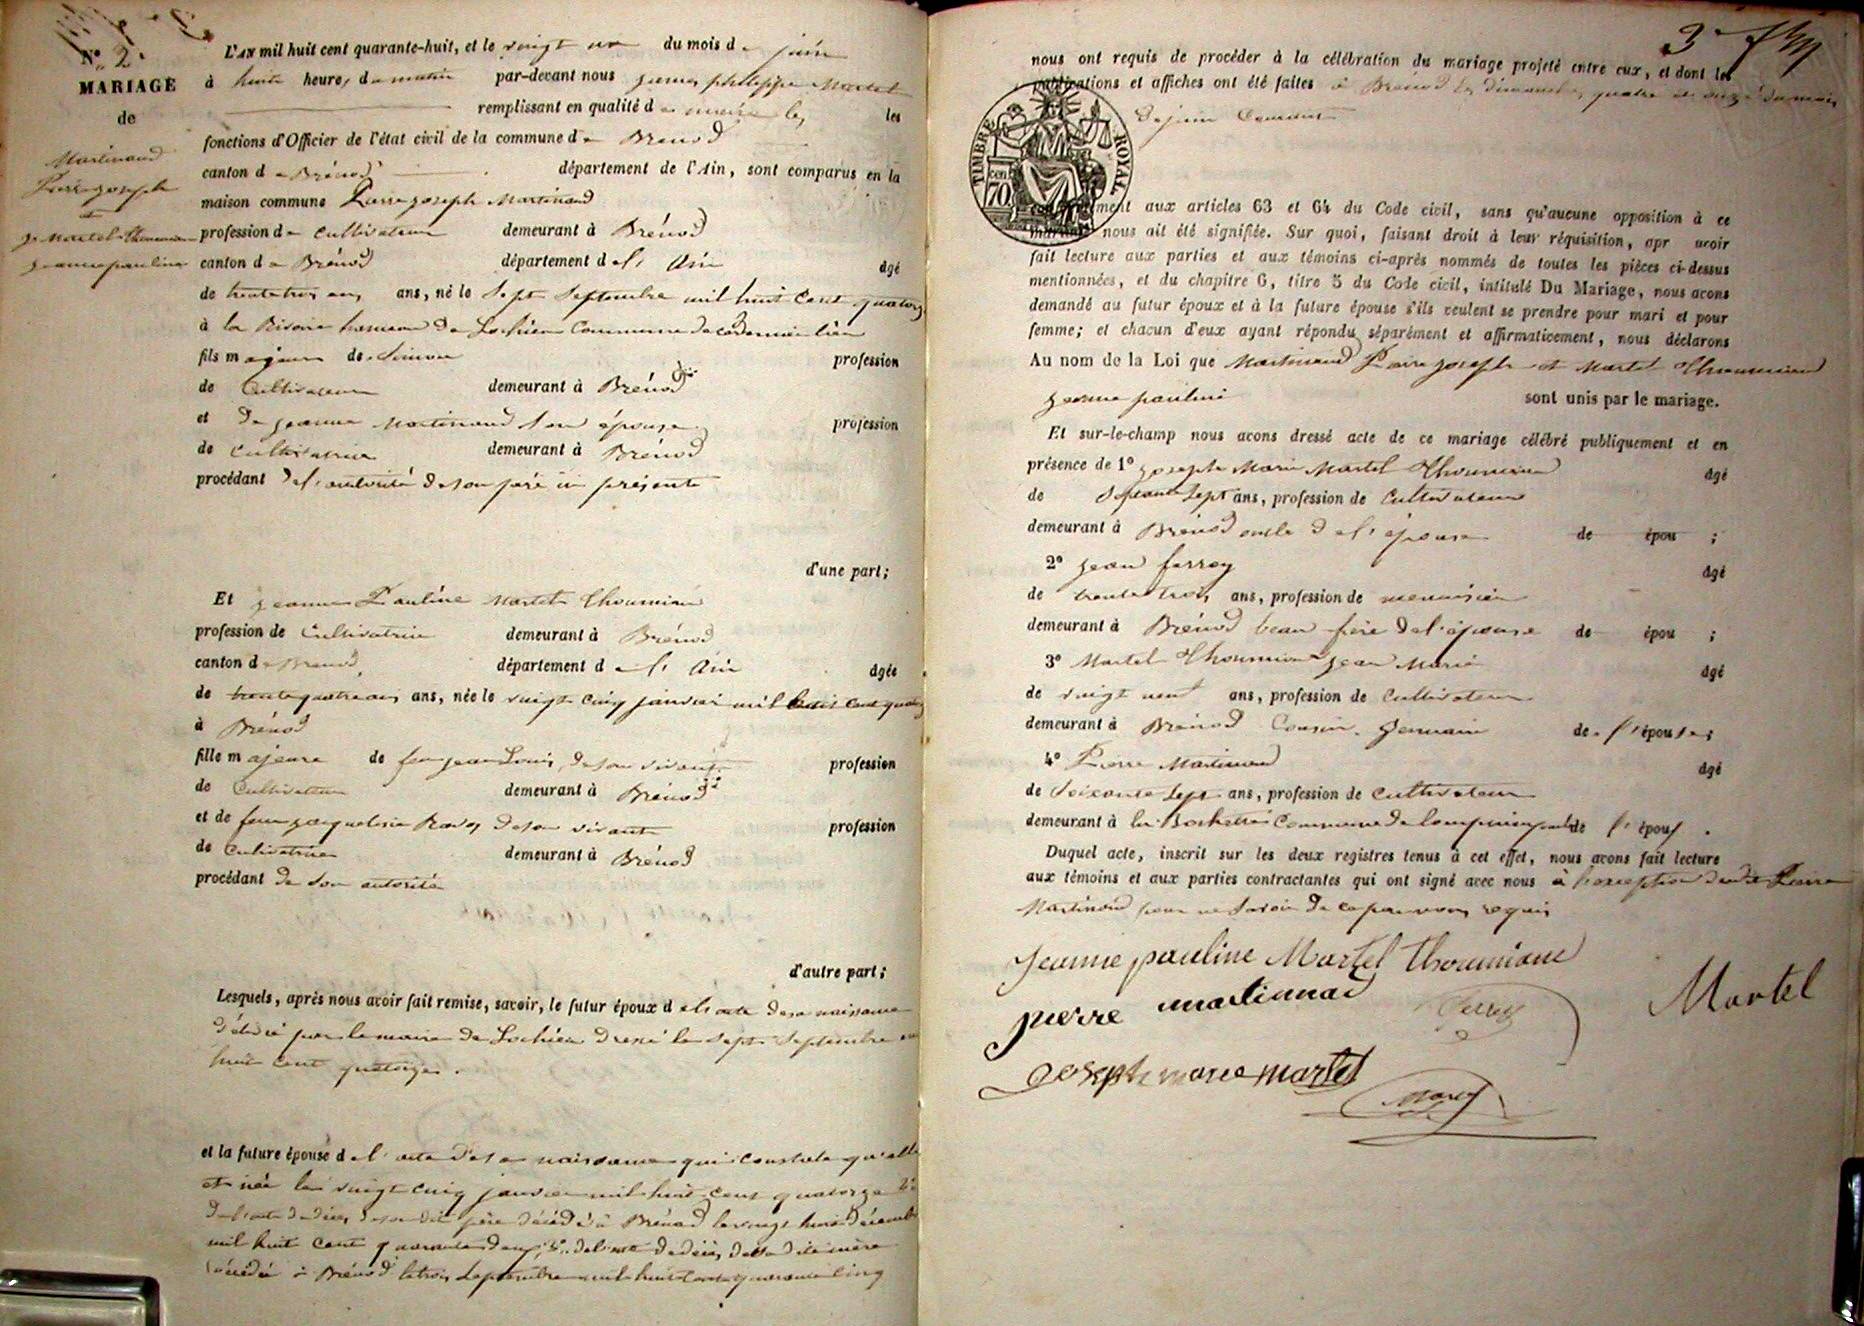 N.º 2.
MARIAGE
de
Martinand
Pierre joseph
et
Martel Thoumian
jeanne pauline
L'AN mil huit cent quarante-huit, et le vingt un du mois de juin
à huit heures du matin par-devant nous james philippe Martel
remplissant en qualité de maire les
fonctions d'Officier de l'état civil de la commune de Brénod
canton de Brénod département de l'Ain, sont comparus en la
maison commune Pierre joseph Martinand
profession de Cultivateur demeurant à Brénod
canton de Brénod département de l'Ain âgé
de trente trois ans, ans, né le sept septembre mil huit cent quatorze
à la Rivoire hameau de Lochieu Commune de ce dernier lieu
fils majeur de Simon profession
de Cultivateur demeurant à Brénod
et de jeanne Martinand son épouse profession
de Cultivatrice demeurant à Brénod
procédant de l'autorité de son père ici présent
d'une part;
Et jeanne Pauline Martel Thoumian
profession de Cultivatrice demeurant à Brénod
canton de Brénod département de l'Ain âgée
de trente quatre ans, ans, née le vingt cinq janvier mil huit cent quatorze
à Brénod
fille majeure de feu jean Louis, de son vivant profession
de Cultivateur demeurant à Brénod
et de feue jacqueline de son vivante profession
de Cultivatrice demeurant à Brénod
procédant de son autorité
d'autre part;
Lesquels, après nous avoir fait remise, savoir, le futur époux de l'acte de sa naissance
délivré par le maire de Lochieu dressé le sept septembre mil
huit cent quatorze.
et la future épouse de l'acte de sa naissance qui constate qu'elle
est née le vingt cinq janvier mil huit cent quatorze 2º
de l'acte de décès de son dit père décédé à Brénod le vingt huit décembre
mil huit cent quarante deux, 3º. de l'acte de décès de sa dite mère
décédée à Brénod le trois septembre mil huit cent quarante cinq
3e
nous ont requis de procéder à la célébration du mariage projeté entre eux, et dont les
publications et affiches ont été faites à Brénod les dimanches quatre et onze du mois
de juin Courant
TIMBRE ROYAL
cen 70
conformément aux articles 63 et 64 du Code civil, sans qu'aucune opposition à ce
mariage nous ait été signifiée. Sur quoi, faisant droit à leur réquisition, apr avoir
fait lecture aux parties et aux témoins ci-après nommés de toutes les pièces ci-dessus
mentionnées, et du chapitre 6, titre 5 du Code civil, intitulé Du Mariage, nous avons
demandé au futur époux et à la future épouse s'ils veulent se prendre pour mari et pour
femme; et chacun d'eux ayant répondu séparément et affirmativement, nous déclarons
Au nom de la Loi que Martinand Pierre joseph et Martel Thoumian
jeanne pauline sont unis par le mariage.
Et sur-le-champ nous avons dressé acte de ce mariage célébré publiquement et en
présence de 1º joseph Marie Martel Thoumian âgé
de sept ans, profession de Cultivateur
demeurant à Brénod oncle de l'épouse de épou ;
2º jean ferrey âgé
de trente trois ans, profession de menuisier
demeurant à Brénod beau-frère de l'épouse de épou ;
3º Martel Thoumian jean Marie âgé
de vingt neuf ans, profession de Cultivateur
demeurant à Brénod Cousin Germain de l'épouse;
4º Pierre Martinand âgé
de soixante sept ans, profession de Cultivateur
demeurant à la Commune de de l'époux.
Duquel acte, inscrit sur les deux registres tenus à cet effet, nous avons fait lecture
aux témoins et aux parties contractantes qui ont signé avec nous à l'exception du dit Pierre
Martinand pour ne savoir de ce par nous requis
Jeanne pauline Martel thoumiane
pierre martinnad
Ferrey
Martel
joseph marie martel
Martel